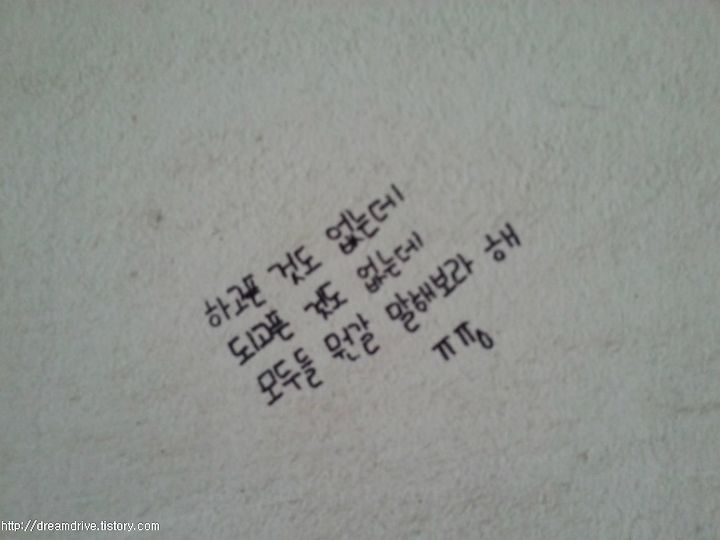 하고픈 것도 없는데
되고픈 것도 없는데
모두들 뭔갈 말해보라 해
http://dreamdrive.tistory.com